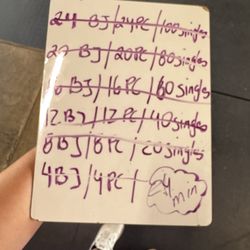 24 BJ/24PC/100 singles
20 BJ/20PC/80 singles
16 BJ/16 PC/60 singles
12 BJ/12 PC/40 singles
8 BJ/8 PC/20 singles
4 BJ/4 PC/
24 min